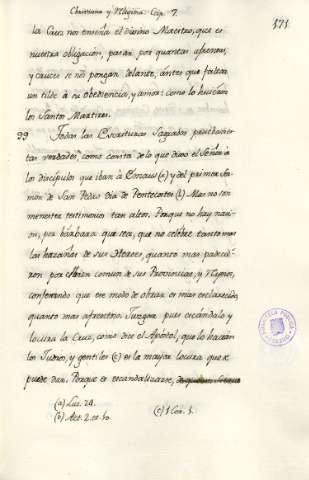 Christiana y Magina. Cap. 7.
171
la Cruz nos enseña el divino Maestro, que es
nuestra obligacion, pasar por quantas afrentas,
y cruces se nos pongan delante, antes que faltar
un tilde à su obediencia, y amor: como lo hicieron
los Santos Martires.
99 Todas las Escrituras Sagradas
verdades, como consta de lo que dixo el Señor à
los discipulos que iban à Emaus (a) y del primer Ser-
mon de San Pedro dia de Pentecostes (b) Mas no son
menester testimonios tan altos. Porque no hay naci-
on, por bàrbara que sea, que no celebre tanto mas
las hazañas de sus Heroes, quanto mas padeci-
ron por el bien comun de sus Provincias, y Reynos,
confesando que ese modo de obrar es mas esclarecido
quanto mas afrentoso. Juzgar pues escàndalo, y
locura la Cruz, como dice el Apòstol, que lo hacian
los Judios, y gentiles (c) es la mayor locura que se
puede dar. Porque el escandalizarse,
(a) Luc. 24.
(b) Act. 2. et 10.
(c) 1 Cor. 1.
BIBLIOTECA PUBLICA